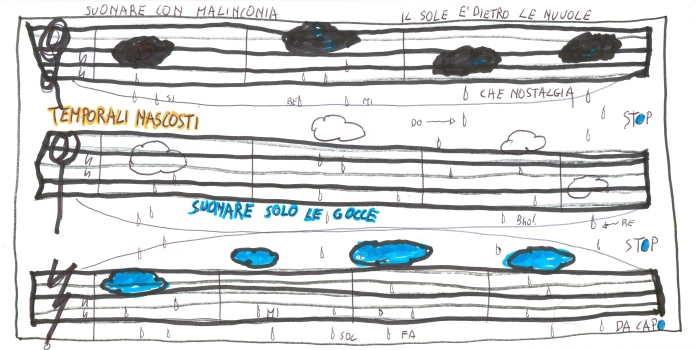 SUONARE CON MALINCONIA IL SOLE E' DIETRO LE NUVOLE
SI RE MI CHE NOSTALGIA
DO STOP
TEMPORALI NASCOSTI
SUONARE SOLO LE GOCCE Bho! RE
STOP
MI
SOL FA DA CAPO